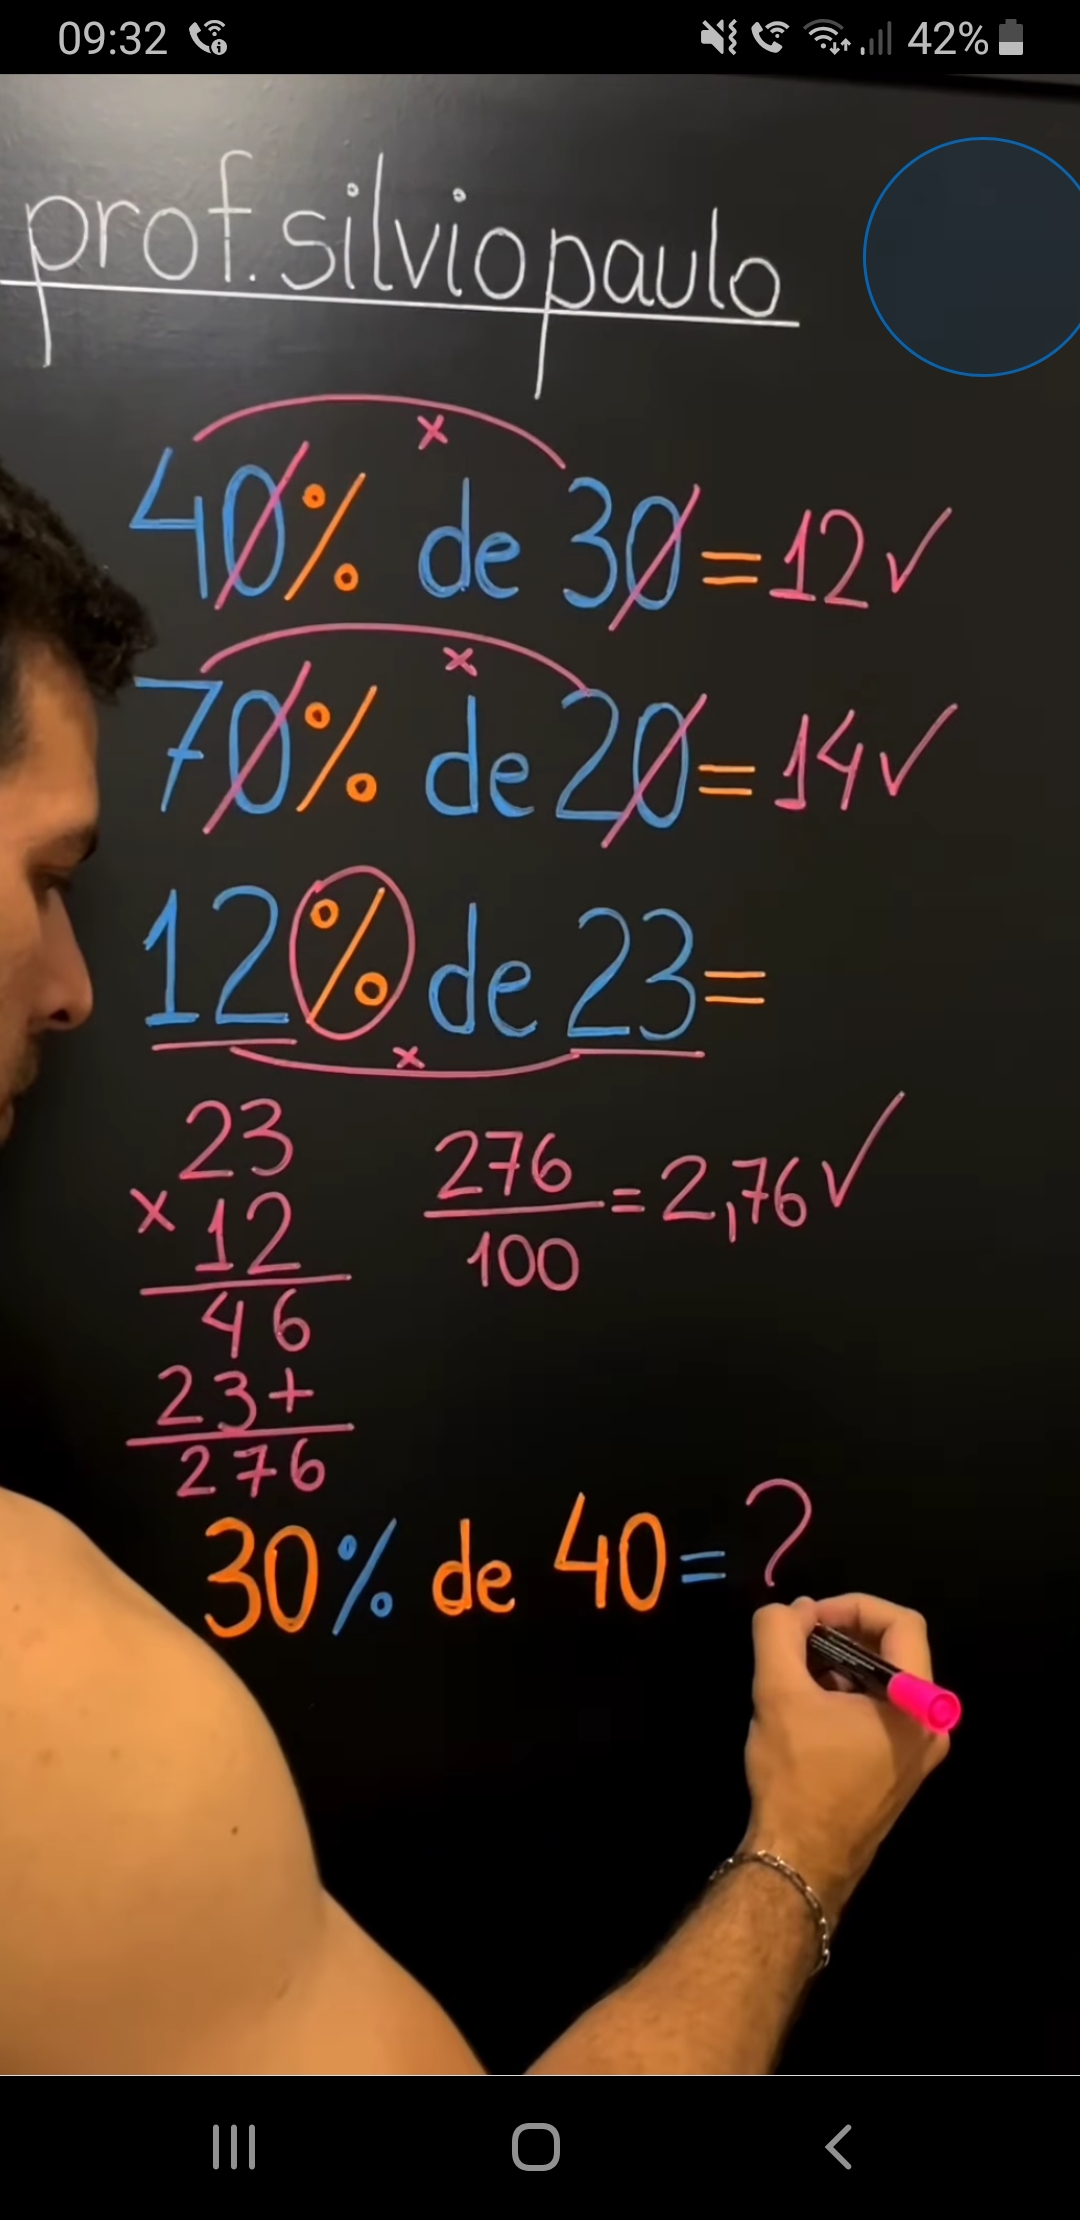 09:32 42%
prof.silviopaulo
x
40% de 30=12✓
x
70% de 20=14✓
12% de 23=
x
23
x 12
46
23+
276
276
100
=2,76✓
30% de 40=?